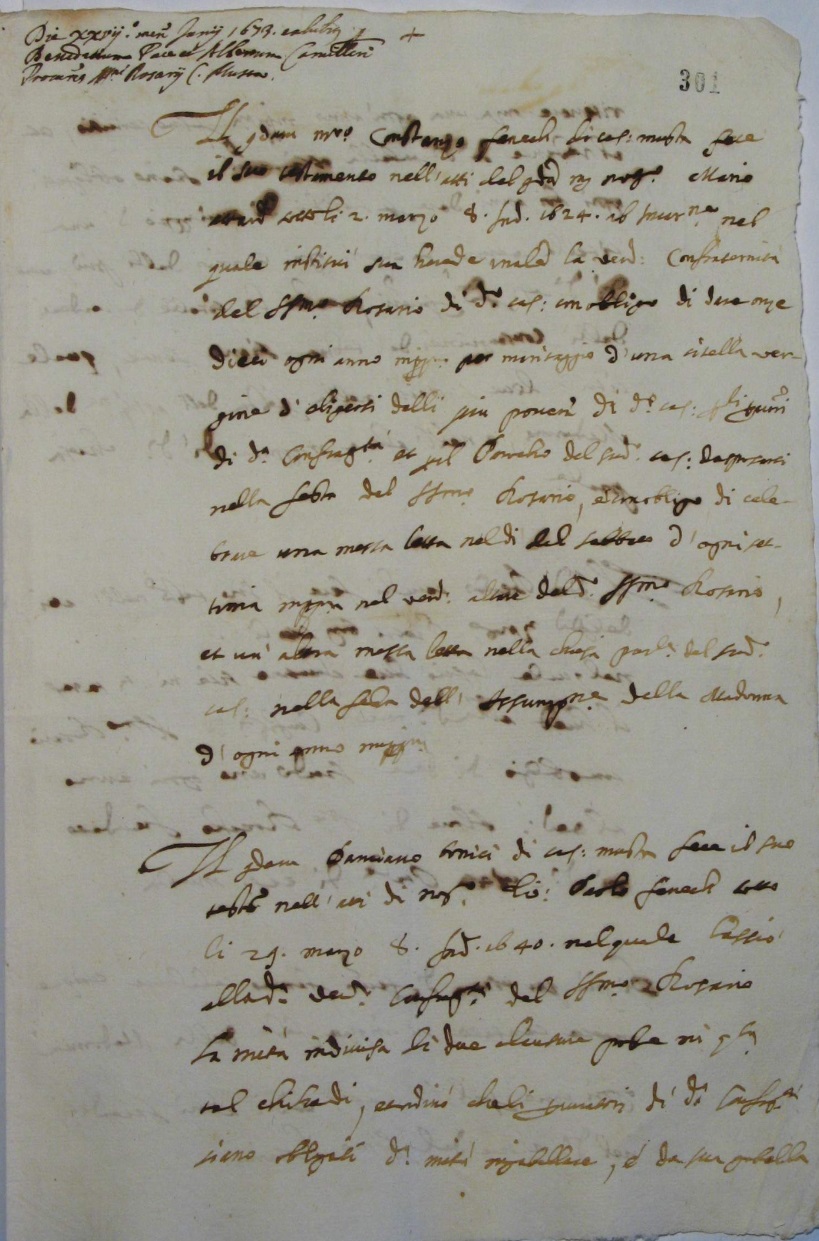 Die xxvij.º men. Junij 1673.
Benedictum Pace et Albernum Camilleri
Rosarij C. Musta.
+
301
Il qdam m.ro Constanzo fenech di cas: musta fece
il suo testamento nell'atti del qdam not.r Mario
attard sotto li 2. marzo 8. Ind. 1624. nel
quale instituì sua herede la vend: Confraternità
del SSmo. Rosario di d.º cas: con obligo di dare onze
dieci ogni anno per maritaggio d'una zitella ver-
gine d'eligersi delli più poveri di d.º cas:
di d.ª Confrat.tà et Parocho del sud.º cas:
nella festa del SSmo. Rosario, et con obligo di cele-
brare una messa letta nel dì del sabbato d'ogni set-
timana nel altare del d.º SSmo. Rosario,
et un'altra messa letta nella chiesa paro.le del sud.º
cas: nella festa dell'Assumpne. della Madonna
d'ogni anno
Il qdam Damiano bonici di cas: musta fece il suo
test.º nell'atti di not.r Gio: Paolo fenech sotto
li 29. marzo 8. Ind. 1640. nel quale lassiò
alla d.ª Confrat.tà del SSmo. Rosario
la mità indivisa di due clausure
tal chilsedi, et ordinò che li di d.ª Confrat.tà
siano obligati d.ª mità ingabellare, e da sua gabella